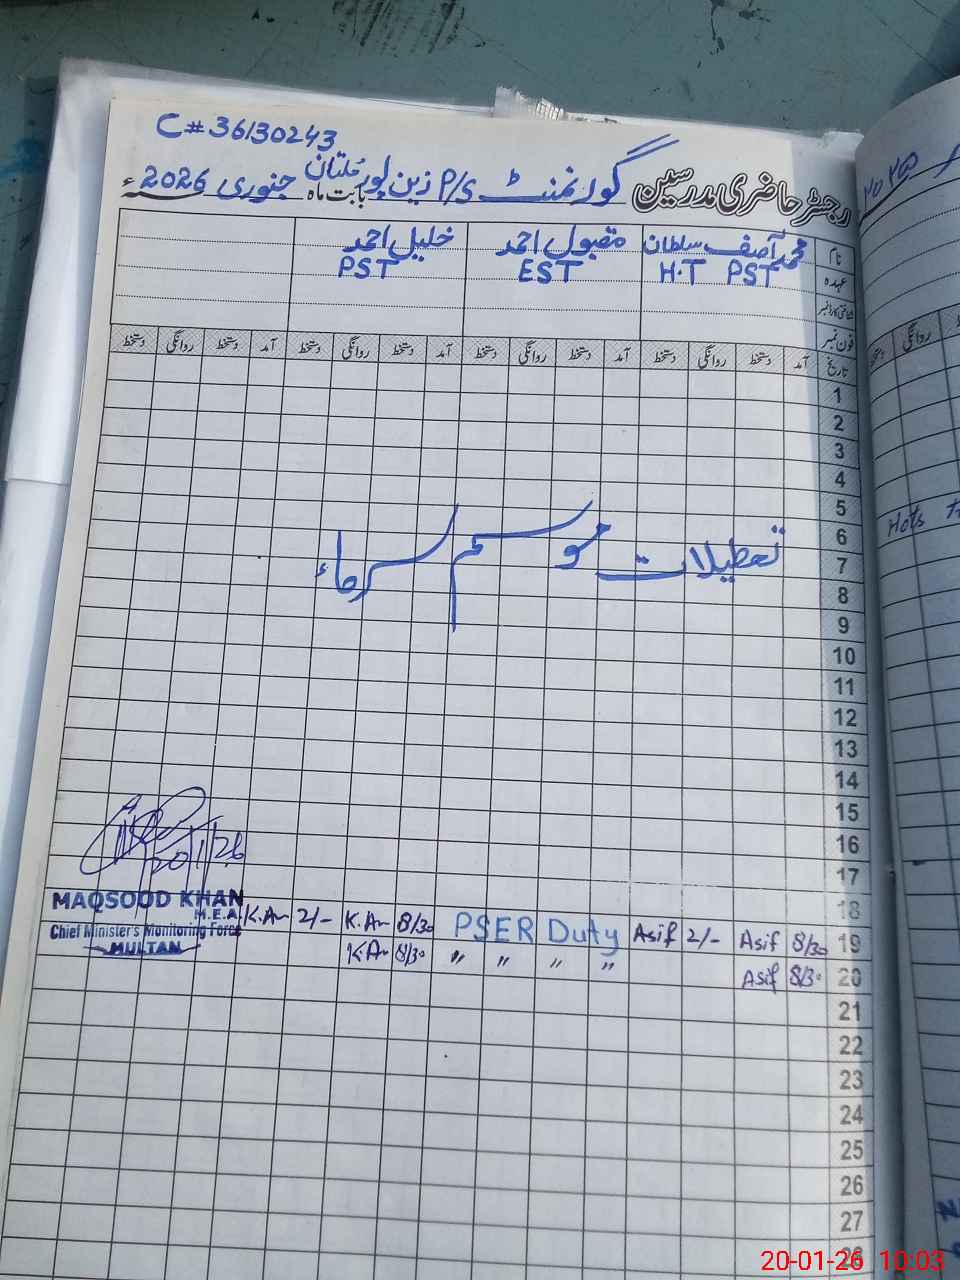 C# 36130243
رجسٹر حاضری مدرسین گورنمنٹ P/S زین پور ملتان بابت ماہ جنوری 2026ء
نام محمد آصف سلطان مقبول احمد خلیل احمد
عہدہ H.T PST EST PST
شناختی کارڈ نمبر
فون نمبر
تاریخ آمد دستخط روانگی دستخط آمد دستخط روانگی دستخط آمد دستخط روانگی دستخط آمد دستخط روانگی دستخط
1
2
3
4
5
6
تعطیلات موسم سرماء
7
8
9
10
11
12
13
14
15
16
17
20/1/26
MAQSOOD KHAN
M.E.A
Chief Minister's Monitoring Force
MULTAN
18
19 8/30 Asif 2/- Asif PSER Duty 8/30 K.Ar 2/- K.Ar
20 8/30 Asif " " " " 8/30 K.Ar
21
22
23
24
25
26
27
28
Hots
20-01-26 10:03